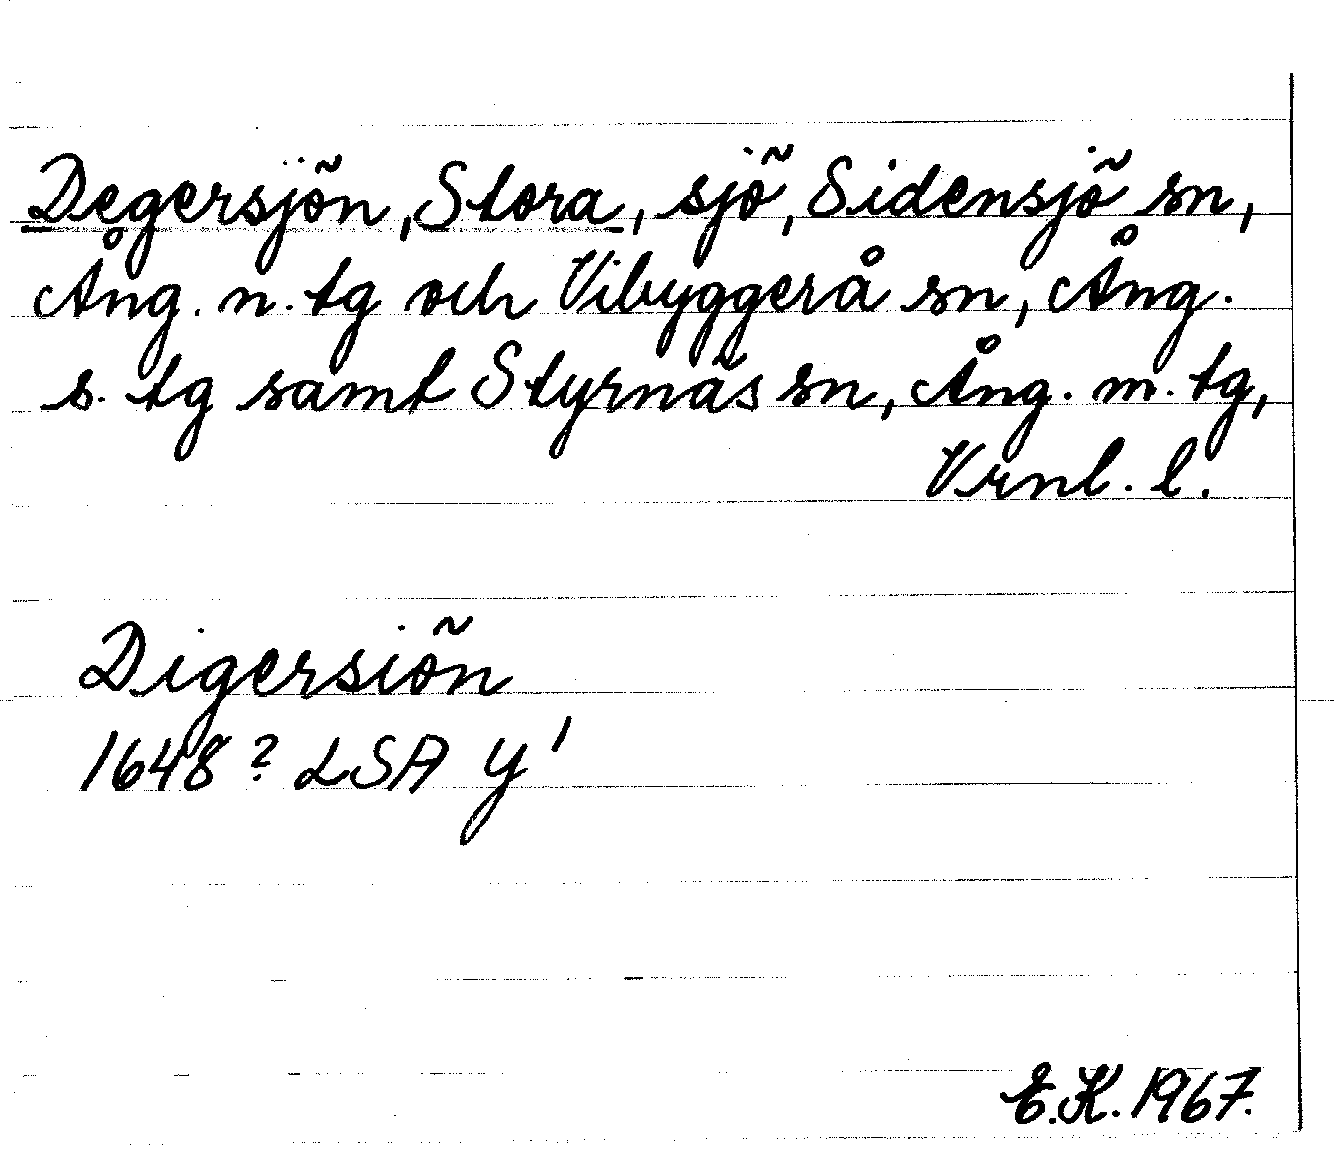 Degersjön, Stora, sjö, Sidensjö sn,
Ång. n. tg och Vibyggerå sn, Ång.
s. tg samt Styrnäs sn, Ång. m. tg,
Vrnl. l.
Digersiön
1648? LSA Y¹
E.K. 1967.